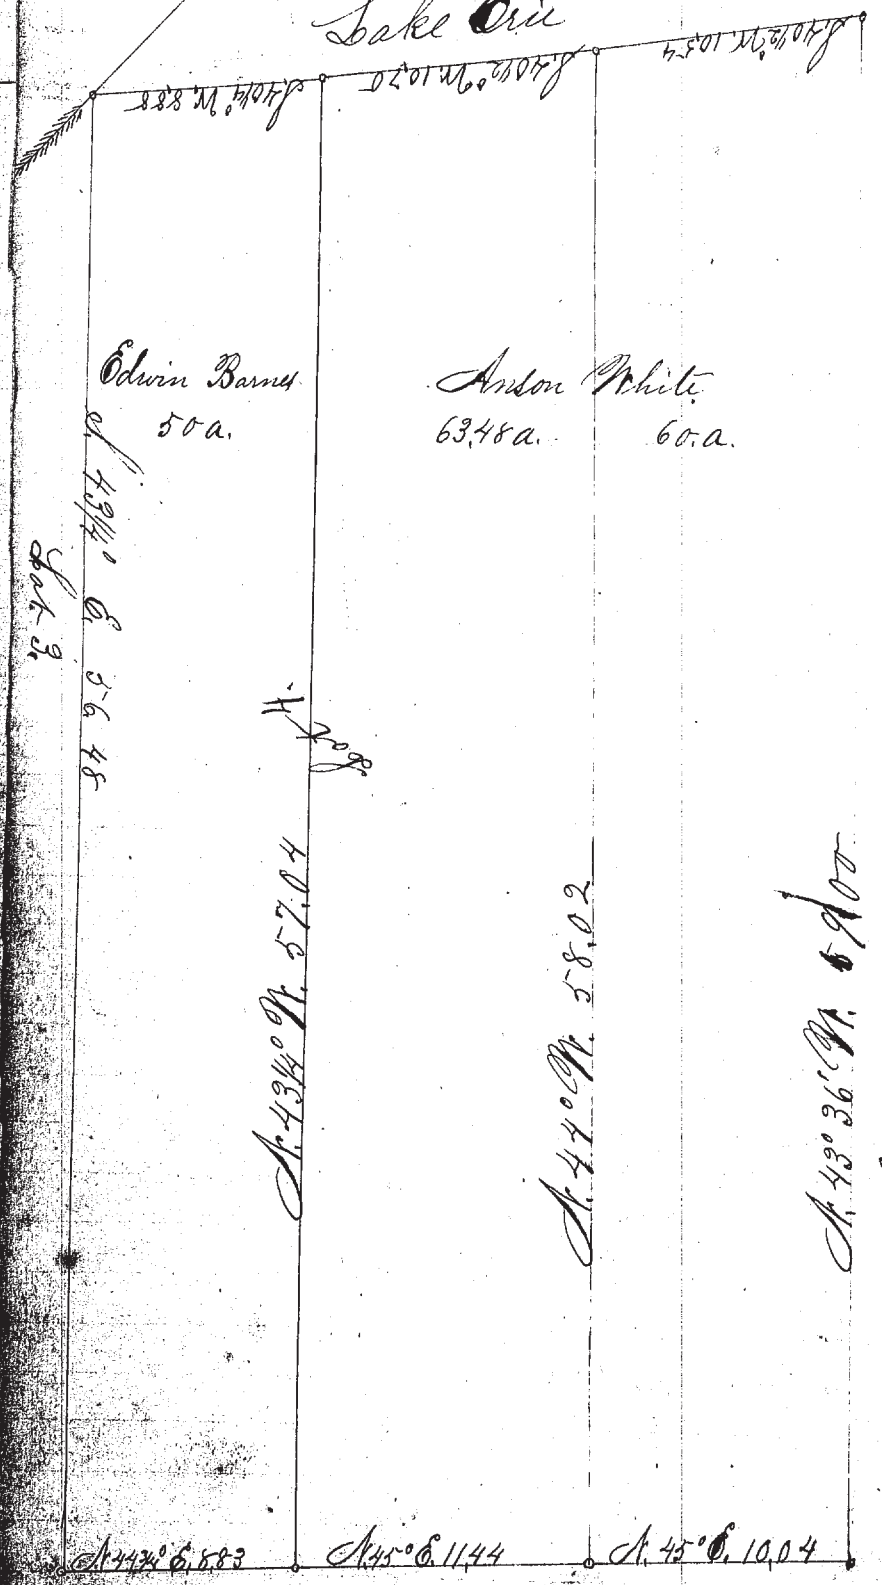 Lake Erie
S. 40¼° W. 8.88
S. 40½° W. 10,70
S. 40½° W. 10,54
Edwin Barnes
50 a.
Anson White
63,48 a.
60. a.
S. 43¼° E. 56 48
Lot 3.
Lot 4.
N. 43¼° W. 57.04
N. 44° W. 58,02
N. 43° 36' W. 59,00
N. 44¾° E. 8,83
N. 45° E. 11,44
N. 45° E. 10,04